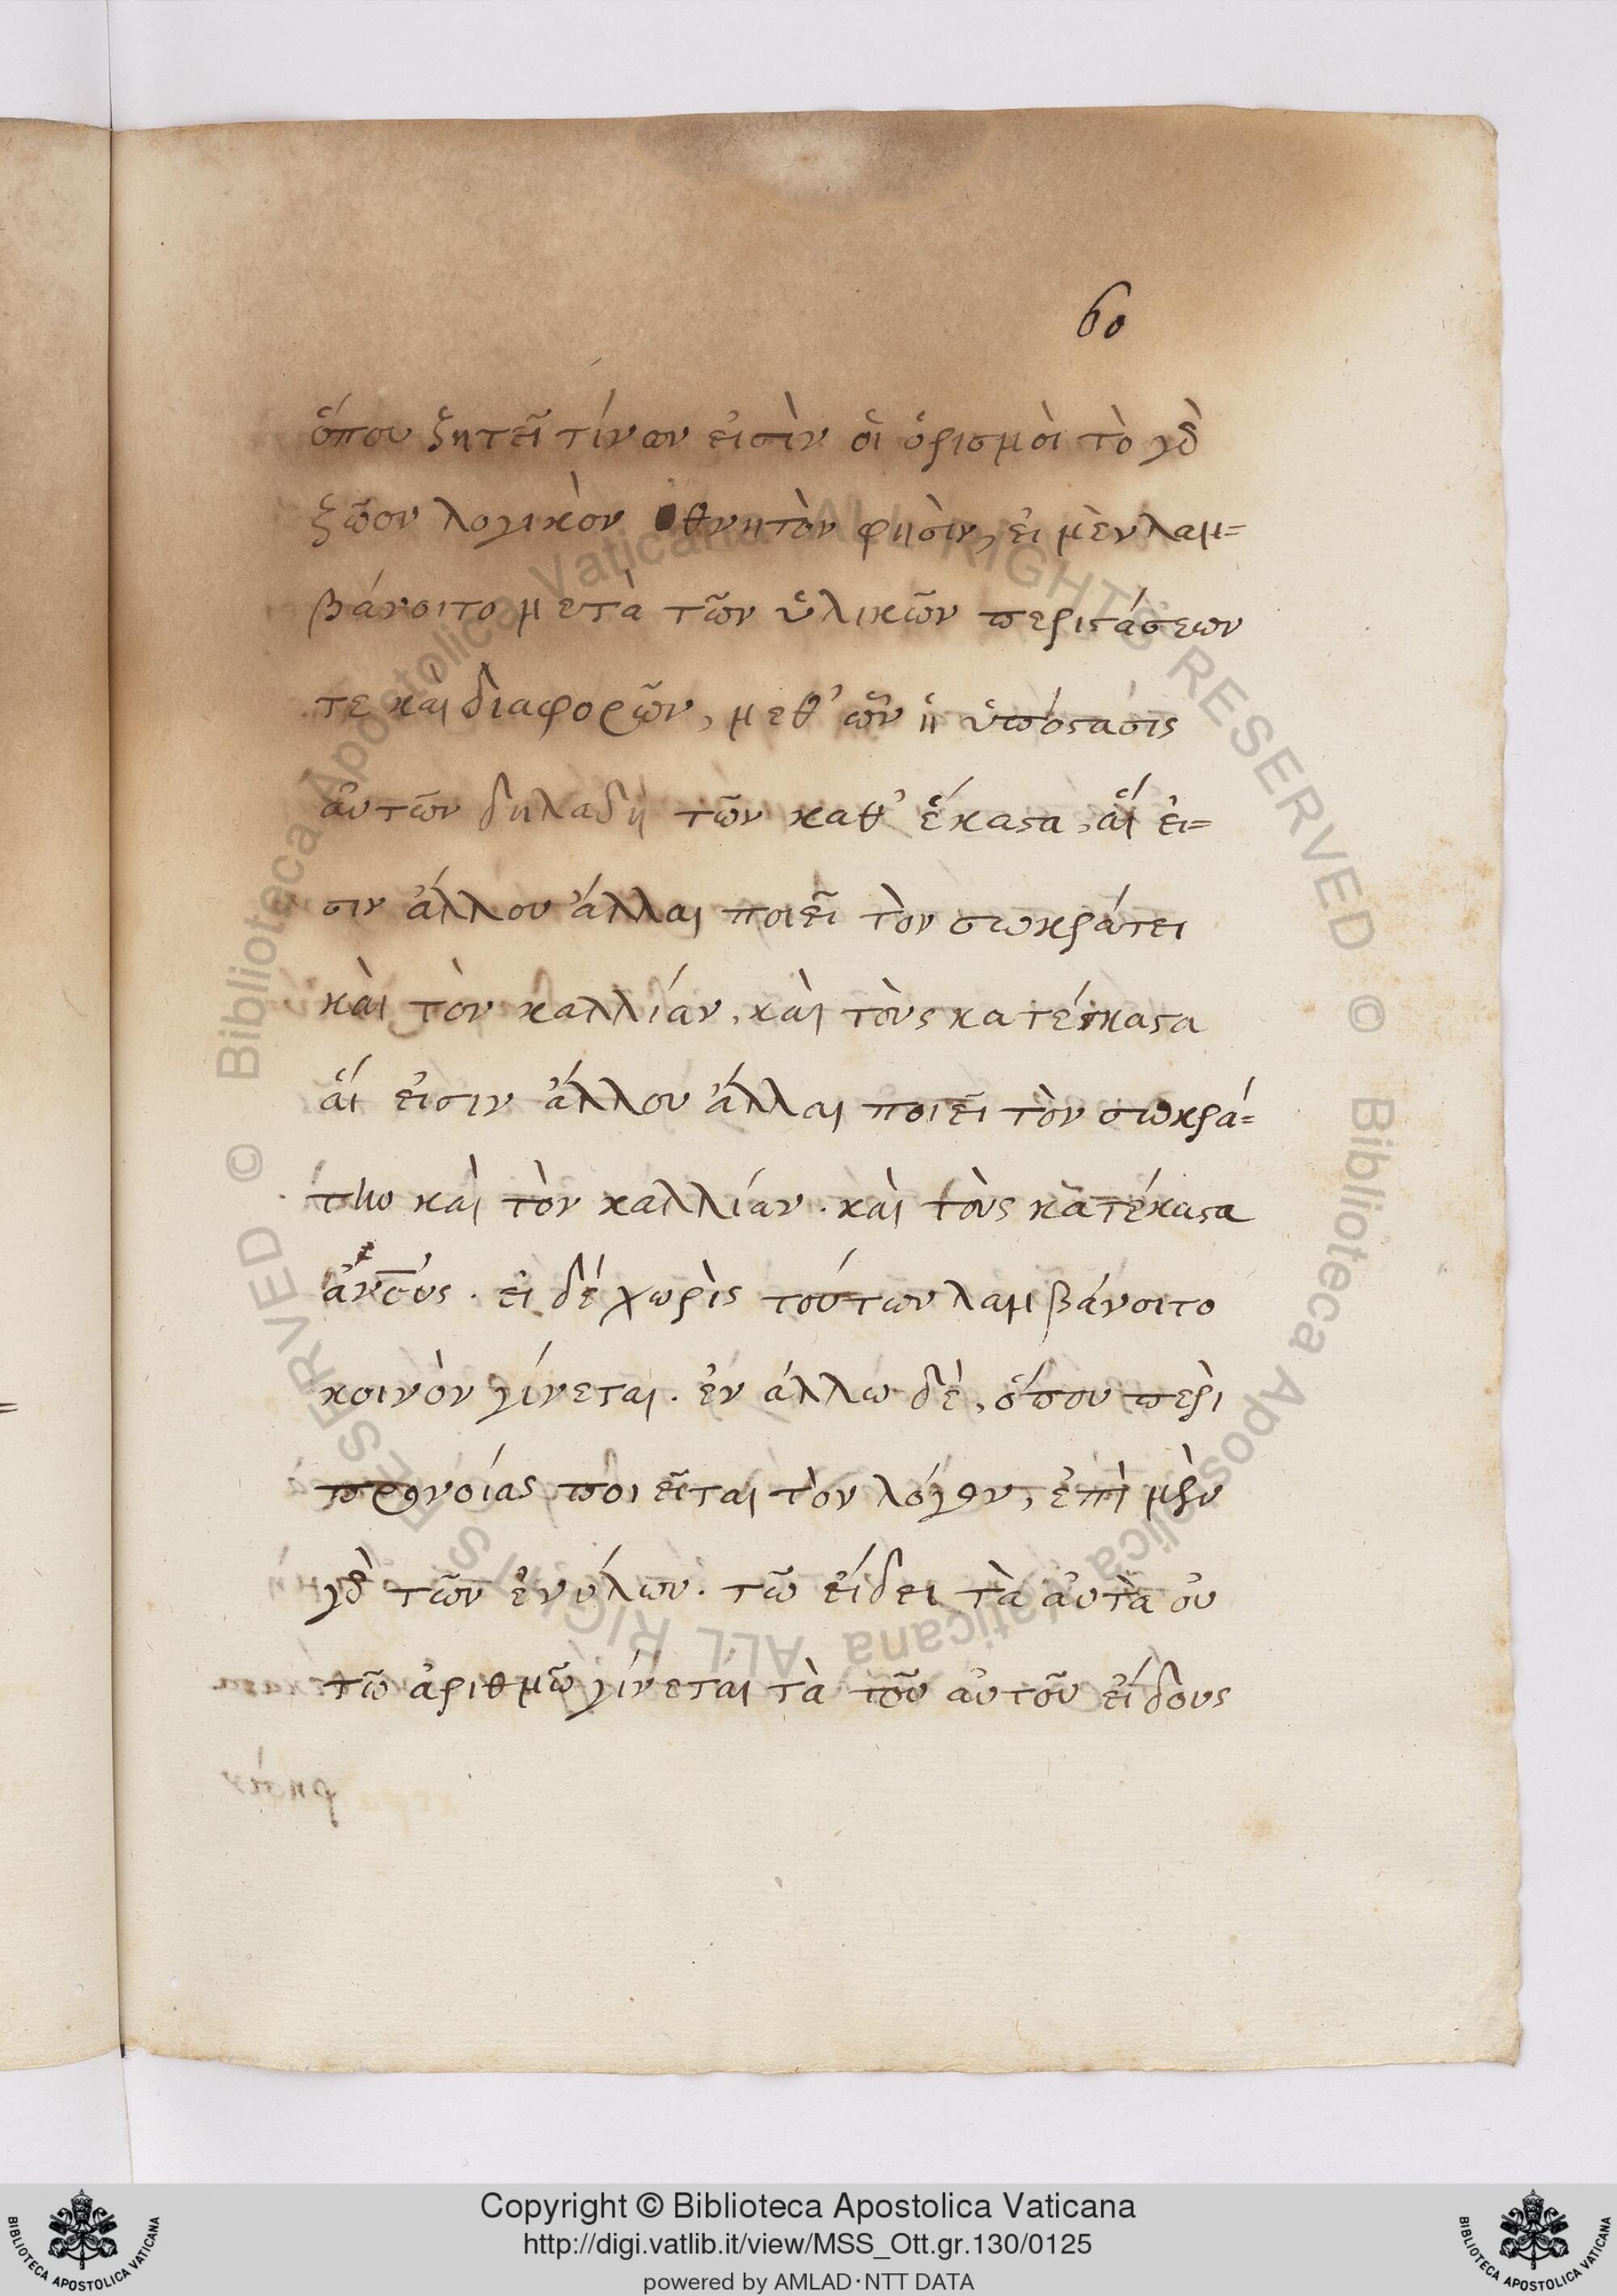 60
ὅπου ζητεῖ τίνων εἰσὶν οἱ ὁρισμοὶ τὸ γὰρ
ζῶον λογικὸν θνητὸν φησὶν, εἰ μὲν λαμ=
βάνοιτο μετὰ τῶν ὑλικῶν περιστάσεων
τε καὶ διαφορῶν, μεθ' ὧν ἡ ὑπόστασις
αὐτῶν δηλαδὴ τῶν καθ' ἕκαστα, αἵ εἰ=
σιν ἄλλου ἄλλαι ποιεῖ τὸν σωκράτει
καὶ τὸν καλλίαν, καὶ τοὺς κατέκαστα
αἵ εἰσιν ἄλλου ἄλλαι ποιεῖ τὸν σωκρά=
την καὶ τὸν καλλίαν. καὶ τοὺς κατέκαστα
εἰ δὲ χωρὶς τούτων λαμβάνοιτο
κοινὸν γίνεται. ἐν άλλω δὲ, ὅπου περὶ
προνοίας ποιεῖται τὸν λόγον, ἐπὶ μὲν
γὰρ τῶν ἐνύλων. τῶ εἴδει τὰ αὐτὰ οὐ
τῶ ἀριθμῶ γίνεται τὰ τοῦ αὐτοῦ εἴδους
© Biblioteca Apostolica Vaticana ALL RIGHTS RESERVED © Biblioteca Apostolica Vaticana ALL RIGHTS RESERVED
Copyright © Biblioteca Apostolica Vaticana
http://digi.vatlib.it/view/MSS_Ott.gr.130/0125
powered by AMLAD·NTT DATA
BIBLIOTECA APOSTOLICA VATICANA
BIBLIOTECA APOSTOLICA VATICANA